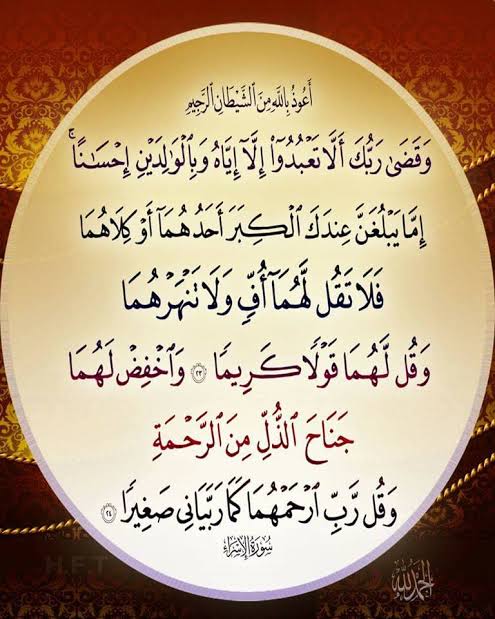 أَعُوذُ بِاللَّهِ مِنَ ٱلشَّيْطَانِ ٱلرَّجِيمِ
وَقَضَىٰ رَبُّكَ أَلَّا تَعْبُدُوٓا۟ إِلَّآ إِيَّاهُ وَبِٱلْوَٰلِدَيْنِ إِحْسَـٰنًا ۚ
إِمَّا يَبْلُغَنَّ عِندَكَ ٱلْكِبَرَ أَحَدُهُمَآ أَوْ كِلَاهُمَا
فَلَا تَقُل لَّهُمَآ أُفٍّ وَلَا تَنْهَرْهُمَا
وَقُل لَّهُمَا قَوْلًا كَرِيمًا ٢٣ وَٱخْفِضْ لَهُمَا
جَنَاحَ ٱلذُّلِّ مِنَ ٱلرَّحْمَةِ
وَقُل رَّبِّ ٱرْحَمْهُمَا كَمَا رَبَّيَانِى صَغِيرًا ٢٤
سُورَةُ الإِسْرَاءِ
H.F.T
الحمد لله